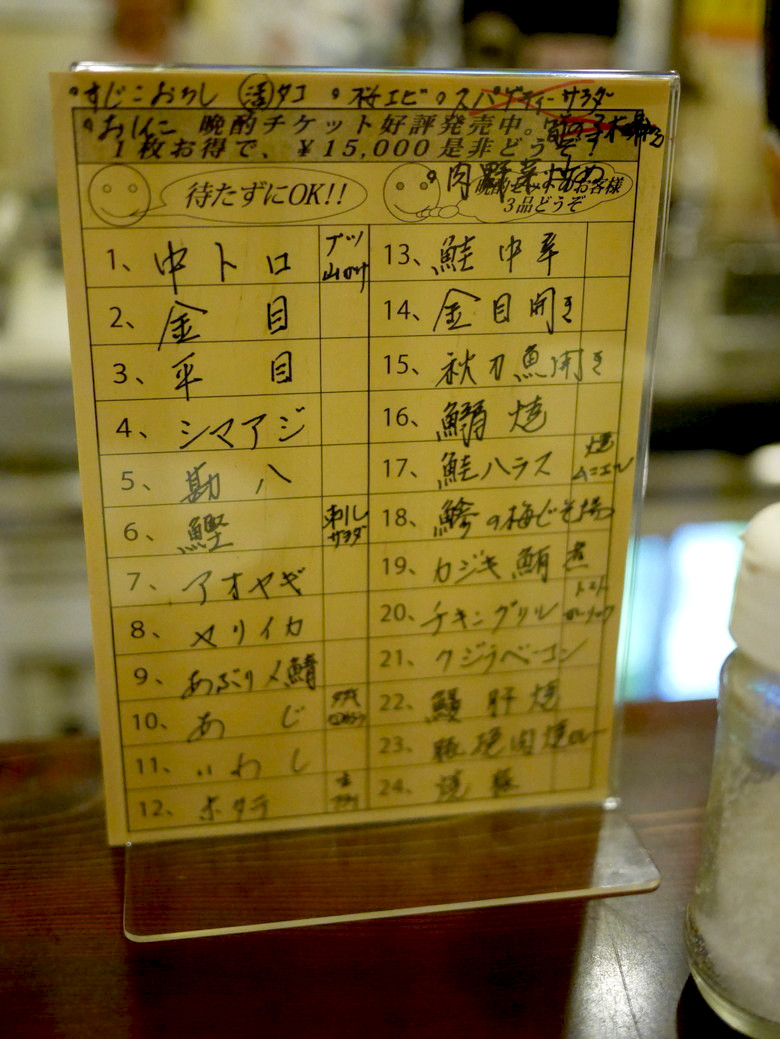 すじこおろし 活タコ 桜エビ スパゲティーサラダ
おしんこ 晩酌チケット好評発売中。
1枚お得で、¥15,000是非どうぞ!
肉野菜炒め
待たずにOK!!
お客様
3品どうぞ
1、中トロ ブツ 山かけ
2、金目
3、平目
4、シマアジ
5、勘八
6、鰹 刺し サラダ
7、アオヤギ
8、ヤリイカ
9、あぶり〆鯖
10、あじ
11、いわし
12、ホタテ
13、鮭中平
14、金目開き
15、秋刀魚開き
16、鰯焼
17、鮭ハラス 焼 ムニエル
18、の梅じそ揚
19、カジキ鮪 煮
20、チキングリル トマト ガーリック
21、クジラベーコン
22、鰻肝焼
23、
24、焼豚